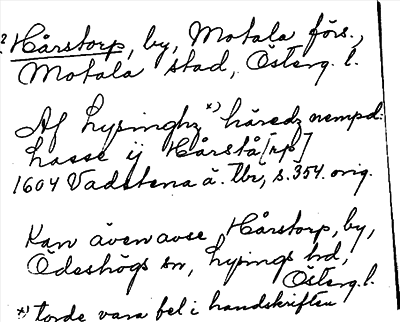 ? Hårstorp, by, Motala förs.,
Motala stad, Österg. l.
Af Lysinghz *) häredz nempd:
Lasse ij Hårstå[rp]
1604 Vadstena ä. Tbr, s. 354. orig.
Kan även avse Hårstorp, by,
Ödeshögs sn, Lysings hd,
Österg. l.
*) torde vara fel i handskriften